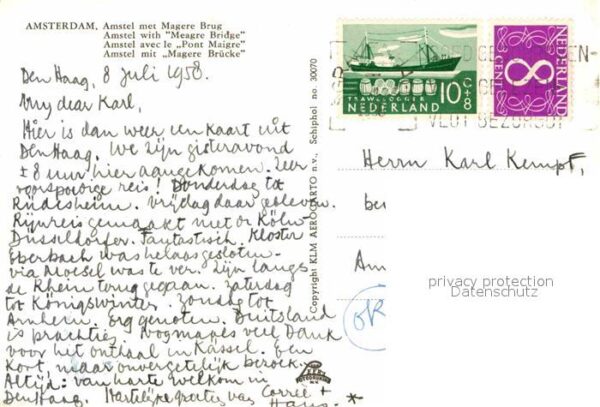 AMSTERDAM, Amstel met Magere Brug
Amstel with "Meagre Bridge"
Amstel avec le „Pont Maigre"
Amstel mit „Magere Brücke"
Den Haag, 8 Juli 1958.
My dear Karl,
Hier is dan weer een kaart uit
Den Haag. We zijn gisteravond
± 8 uur hier aangekomen. Zeer
voorspoedige reis! Donderdag tot
Rüdesheim. Vrijdag daar gebleven.
Rijnreis gemaakt met de Köln-
Düsseldorfer. Fantastisch. Kloster
Eberbach was helaas gesloten.
via Moesel was te ver. Zijn langs
de Rhein terug gegaan. Zaterdag
tot Königswinter. Zondag tot
Arnhem. Erg genoten. Duitsland
is prachtig. Nogmaals veel Dank
voor het onthaal in Kassel. Een
kort, maar onvergetelijk bezoek.
Altijd: van harte welkom in
Den Haag. Hartelijke groeten van Corrie +
Hans. *
Copyright KLM AEROCARTO n.v., Schiphol no. 30070
TRAWLLOGGER 10 C+8
NEDERLAND
8 CENT
NEDERLAND
VLOT BEZORGD!
Herrn Karl Kempf,
be
Am
OK
privacy protection
Datenschutz